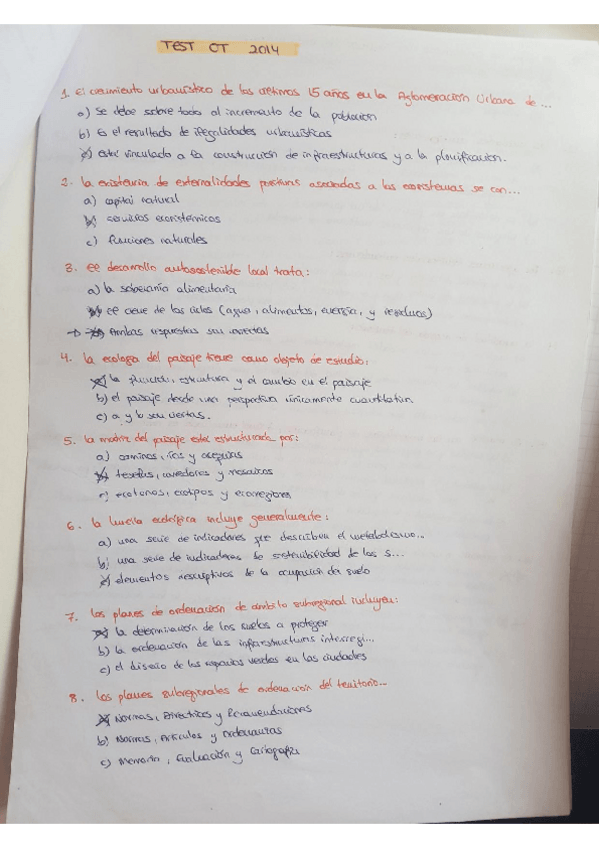 TEST OT 2014
1. El crecimiento urbanístico de los últimos 15 años en la Aglomeración Urbana de ...
a) se debe sobre todo al incremento de la población
b) Es el resultado de ilegalidades urbanísticas
c) está vinculado a la construcción de infraestructuras y a la planificación.
2. la existencia de externalidades positivas asociadas a los ecosistemas se con...
a) capital natural
b) servicios ecosistémicos
c) funciones naturales
3. el desarrollo autosostenible local trata:
a) la soberanía alimentaria
b) el cierre de los ciclos (agua, alimentos, energía, y residuos)
→ c) Ambas respuestas son correctas
4. la ecología del paisaje tiene como objeto de estudio:
a) la función, estructura y el cambio en el paisaje
b) el paisaje desde una perspectiva únicamente cuantitativa
c) a y b son ciertas.
5. la matriz del paisaje está estructurada por:
a) caminos, ríos y acequias
b) teselas, corredores y mosaicos
c) ecotonos, ecotipos y ecorregiones
6. la huella ecológica incluye generalmente:
a) una serie de indicadores que describen el metabolismo...
b) una serie de indicadores de sostenibilidad de los s...
c) elementos descriptivos de la ocupación da suelo
7. los planes de ordenación de ámbito subregional incluyen:
a) la determinación de los suelos a proteger
b) la ordenación de las infraestructuras interregi...
c) el diseño de los espacios verdes en las ciudades
8. los planes subregionales de ordenación del territorio...
a) Normas, Directrices y Recomendaciones
b) Normas, Artículos y Ordenanzas
c) Memoria, Evaluación y Cartografía